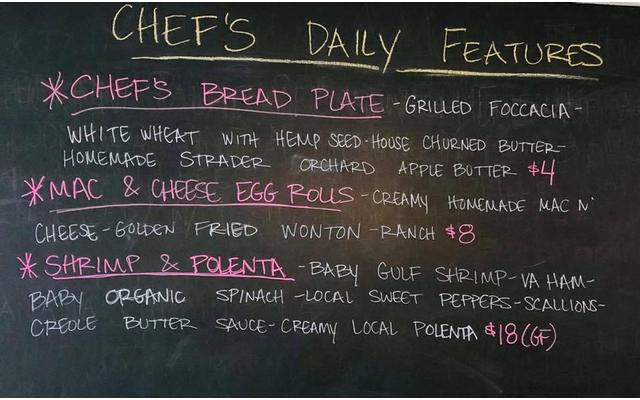 CHEF'S DAILY FEATURES
*CHEF'S BREAD PLATE -GRILLED FOCCACIA-
WHITE WHEAT WITH HEMP SEED-HOUSE CHURNED BUTTER-
HOMEMADE STRADER ORCHARD APPLE BUTTER $4
*MAC & CHEESE EGG ROLLS -CREAMY HOMEMADE MAC N'
CHEESE-GOLDEN FRIED WONTON -RANCH $8
*SHRIMP & POLENTA -BABY GULF SHRIMP-VA HAM-
BABY ORGANIC SPINACH -LOCAL SWEET PEPPERS-SCALLIONS-
CREOLE BUTTER SAUCE-CREAMY LOCAL POLENTA $18(GF)